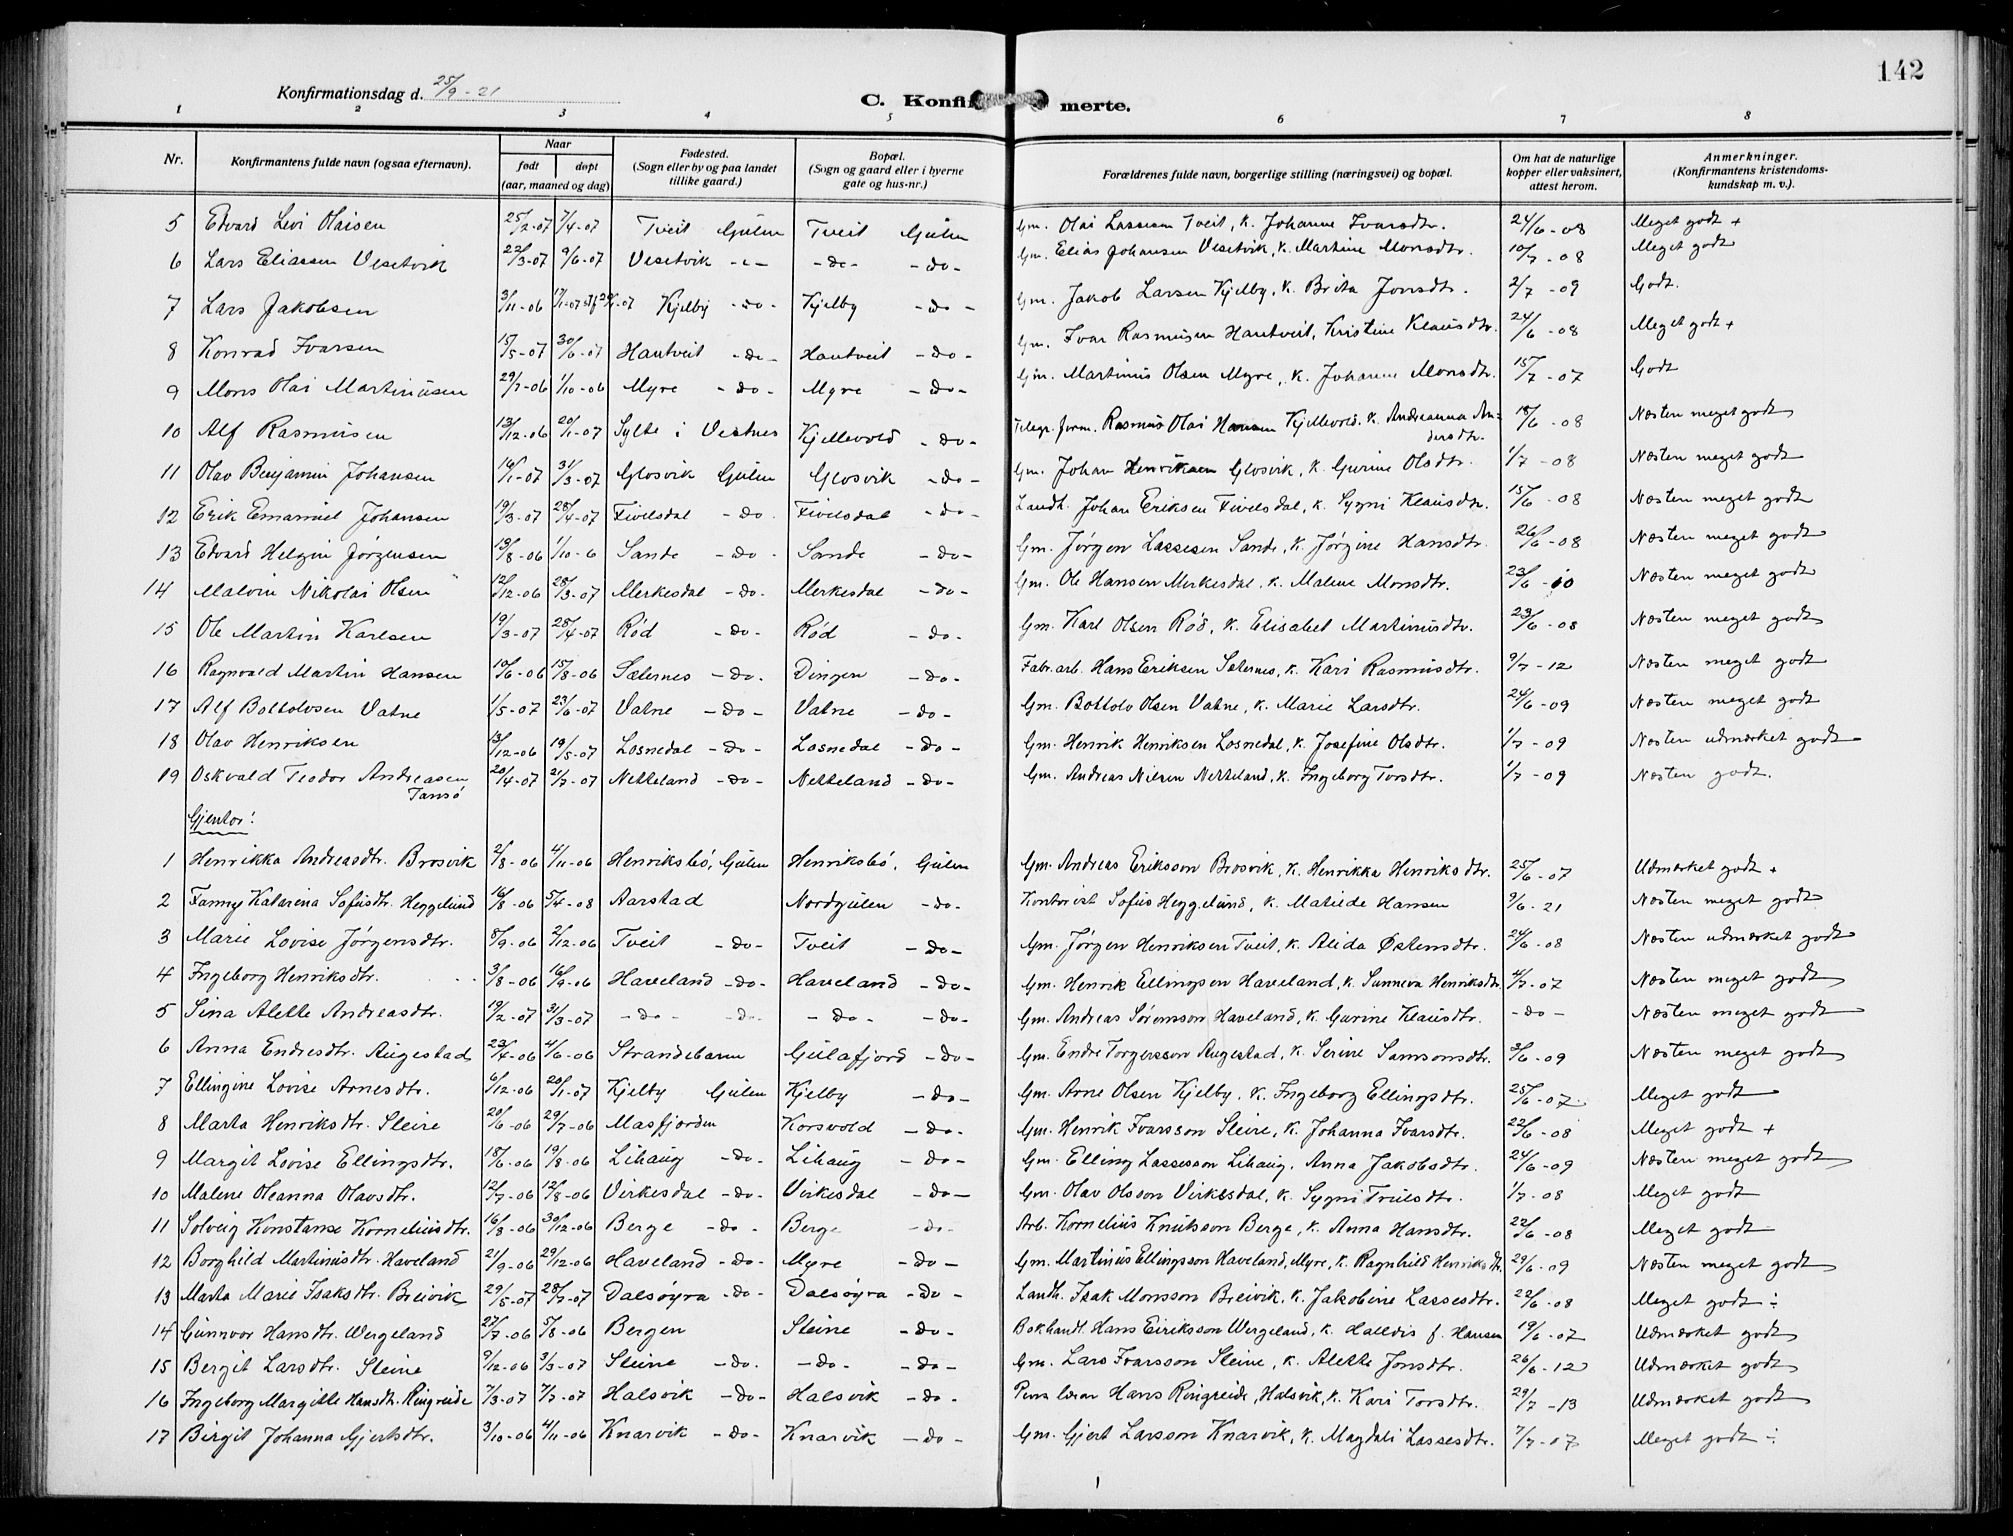 142
Konfirmationsdag d. 25/9 - 21
C. Konfirmerte.
1 2 3 4 5 6 7 8
Nr. Konfirmantens fulde navn (ogsaa efternavn). Naar født døpt (aar, maaned og dag) Fødested. (Sogn eller by og paa landet tillike gaard.) Bopæl. (Sogn og gaard eller i byerne gate og hus-nr.) Forældrenes fulde navn, borgerlige stilling (næringsvei) og bopæl. Om hat de naturlige kopper eller vaksinert, attest herom. Anmerkninger. (Konfirmantens kristendomskundskap m. v.).
5 Edvard Levi Olaisen 25/2-07 7/4-07 Tveit Gulen Tveit Gulen Gm. Olai Lassesen Tveit, k. Johanne Ivarsdtr. 24/6-08 Meget godt +
6 Lars Eliassen Vesetvik 22/3-07 9/6-07 Vesetvik -"- -do- -do- Gm. Elias Johansen Vesetvik, k. Martine Monsdtr. 10/7-08 Meget godt
7 Lars Jakobsen 3/11-06 Kjelby -do- Kjelby -do- Gm. Jakob Larsen Kjelby, k. Brita Jonsdtr. 2/7-09 Godt.
8 Konrad Ivarsen 15/5-07 30/6-07 Hantveit -do- Hantveit -do- Gm. Ivar Rasmusen Hantveit, Kristine Klausdtr. 24/6-08 Meget godt +
9 Mons Olai Martinusen 29/7-06 1/10-06 Myre -do- Myre -do- Gm. Martinus Olsen Myre, k. Johanne Monsdtr. 15/7-07 Godt
10 Alf Rasmusen 13/12-06 20/1-07 Sylte i Vestnes Kjellevold -do- Telegr. form. Rasmus Olai Hansen Kjellevold. k. Andreanna Andersdtr. 18/6-08 Næsten meget godt
11 Olav Benjamin Johansen 16/1-07 31/3-07 Glosvik Gulen Glosvik -do- Gm. Johan Henriksen Glosvik, k. Gurine Olsdtr. 1/7-08 Næsten meget godt
12 Erik Emanuel Johansen 19/3-07 28/4-07 Fivelsdal -do- Fivelsdal -do- Landh. Johan Eriksen Fivelsdal, k. Sygni Klausdtr. 15/6-08 Næsten meget godt
13 Edvard Helgin Jørgensen 13/8-06 1/10-6 Sande -do- Sande -do- Gm. Jørgen Lassesen Sande, k. Jørgine Hansdtr. 26/6-08 Næsten meget godt
14 Malvin Nikolai Olsen 12/12-06 28/3-07 Merkesdal -do- Merkesdal -do- Gm. Ole Hansen Merkesdal, k. Malene Monsdtr. 23/6-10 Næsten meget godt
15 Ole Martin Karlsen 19/3-07 28/4-07 Rød -do- Rød -do- Gm. Karl Olsen Rød, k. Elisabet Martinusdtr. 23/6-08 Næsten meget godt
16 Ragnvald Martin Hansen 10/6-06 15/8-06 Sæternes -do- Dingen -do- Fabr. arb. Hans Eriksen Sæternes, k. Kari Rasmusdtr. 9/7-12 Næsten meget godt
17 Alf Bottolvsen Vatne 1/5-07 23/6-07 Vatne -do- Vatne -do- Gm. Bottolv Olsen Vatne, k. Marie Larsdtr. 24/6-09 Næsten meget godt
18 Olav Henriksen 13/12-06 19/5-07 Losnedal -do- Losnedal -do- Gm. Henrik Henriksen Losnedal, k. Josefine Olsdtr. 1/7-09 Næsten udmerket godt
19 Oskvald Teodor Andreasen Tansø 20/4-07 21/7-07 Netteland -do- Netteland -do- Gm. Andreas Nilsen Netteland, k. Ingeborg Torsdtr. 1/7-09 Næsten godt.
Gjentor:
1 Henrikka Andreasdtr. Brosvik 2/8-06 4/11-06 Henriksbø, Gulen Henriksbø, Gulen Gm. Andreas Eriksson Brosvik, k. Henrikka Henriksdtr. 25/6-07 Udmerket godt +
2 Fanny Katarina Sofusdtr. Heggelund 16/8-06 5/4-08 Aarstad Nordgulen -do- Kontorist Sofus Heggelund, k. Matilde Hansen 9/6-21 Næsten meget godt
3 Marie Lovise Jørgensdtr. 8/9-06 2/12-06 Tveit -do- Tveit -do- Gm. Jørgen Henriksen Tveit, k. Alida Østensdtr. 24/6-08 Næsten udmerket godt
4 Ingeborg Henriksdtr. 3/8-06 16/9-06 Haveland -do- Haveland -do- Gm. Henrik Ellingsen Haveland, k. Sunneva Henriksdtr. 4/7-07 Næsten meget godt
5 Sina Alette Andreasdtr. 19/2-07 31/3-07 -do- -do- -do- -do- Gm. Andreas Sørensson Haveland, k. Gurine Klausdtr. -do- Næsten meget godt
6 Anna Endresdtr. Augestad 23/4-06 4/6-06 Strandebarm Gulafjord -do- Gm. Endre Torgersson Augestad, k. Serine Samsonsdtr. 3/6-09 Næsten meget godt
7 Ellingine Lovise Arnesdtr. 6/12-06 20/1-07 Kjelby Gulen Kjelby -do- Gm. Arne Olsen Kjelby, k. Ingeborg Ellingsdtr. 25/6-07 Meget godt
8 Marta Henriksdtr. Steine 20/6-06 29/7-06 Masfjorden Korsvold -do- Gm. Henrik Ivarsson Steine, k. Johanna Ivarsdtr. 22/6-08 Meget godt +
9 Margit Lovise Ellingsdtr. 18/6-06 19/8-06 Lihaug -do- Lihaug -do- Gm. Elling Lassesson Lihaug, Anna Jakobsdtr. 24/6-09 Næsten meget godt
10 Malene Oleanna Olavsdtr. 12/7-06 12/8-06 Virkesdal -do- Virkesdal -do- Gm. Olav Olsson Virkesdal, k. Sygni Trulsdtr. 1/7-08 Meget godt
11 Solveig Konstanse Korneliusdtr. 16/8-06 30/12-06 Berge -do- Berge -do- Arb. Kornelius Knutsson Berge, k. Anna Hansdtr. 22/6-08 Meget godt
12 Borghild Martinusdtr. Haveland 21/9-06 29/12-06 Haveland -do- Myre -do- Gm. Martinus Ellingsson Haveland, Myre, k. Ragnhild Henriksdtr. 29/6-09 Næsten meget godt
13 Marta Marie Isaksdtr. Breivik 29/5-07 28/7-07 Dalsøyra -do- Dalsøyra -do- Landh. Isak Monsson Breivik, k. Jakobine Lassesdtr. 22/6-08 Meget godt ÷
14 Gunnvor Hansdtr. Wergeland 27/7-06 5/8-06 Bergen Steine -do- Bokhandl. Hans Eiriksson Wergeland, k. Halldis f. Hansen 19/6-07 Udmerket godt
15 Bergit Larsdtr. Steine 9/12-06 3/3-07 Steine -do- -do- -do- Gm. Lars Ivarsson Steine, k. Alette Jonsdtr. 26/6-12 Udmerket godt
16 Ingeborg Margitte Hansdtr. Ringreide 7/3-07 7/7-07 Halsvik -do- Halsvik -do- Pens. lærer Hans Ringreide, Halsvik, k. Kari Torsdtr. 29/7-13 Udmerket godt
17 Birgit Johanna Gjertsdtr. 3/10-06 4/11-06 Knarvik -do- Knarvik -do- Gm. Gjert Larsson Knarvik, k. Magdeli Lassesdtr. 7/7-07 Meget godt ÷